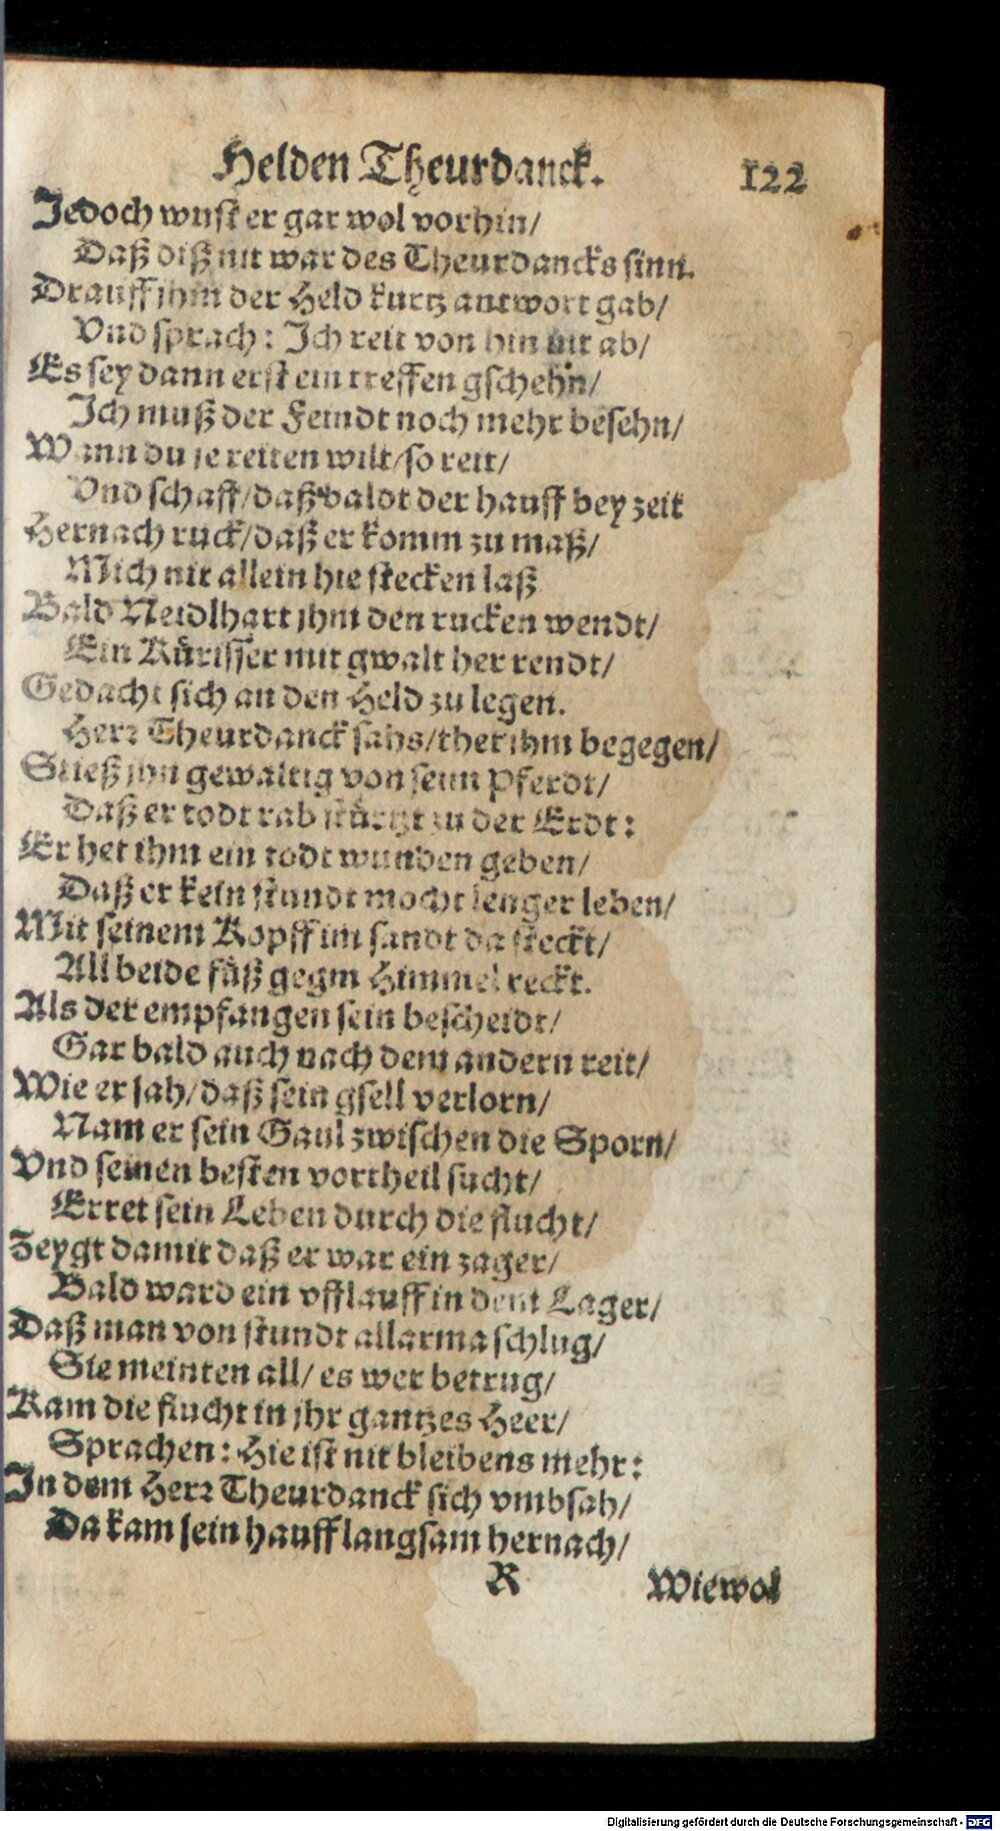 Helden Theurdanck. 122
Jedoch wust er gar wol vorhin/
Daß diß nit war des Theurdancks sinn.
Drauff jhm der Held kurtz antwort gab/
Vnd sprach: Ich reit von hin nit ab/
Es sey dann erst ein treffen gschehn/
Ich muß der Feindt noch mehr besehn/
Wann du je reiten wilt/so reit/
Vnd schaff/daß baldt der hauff bey zeit
Hernach ruck/daß er komm zu maß/
Mich nit allein hie stecken laß
Bald Neidlhart jhm den rucken wendt/
Ein Kürisser mit gwalt her rendt/
Gedacht sich an den Held zu legen.
Herr Theurdanck sahs/thet ihm begegen/
Stieß jhn gewaltig von seim Pferdt/
Daß er todt rab stürtzt zu der Erdt:
Er het ihm ein todt wunden geben/
Daß er kein stundt mocht lenger leben/
Mit seinem Kopff im sandt da steckt/
All beide füß gegm Himmel reckt.
Als der empfangen sein bescheidt/
Gar bald auch nach dem andern reit/
Wie er sah/daß sein gsell verlorn/
Nam er sein Gaul zwischen die Sporn/
Vnd seinen besten vortheil sucht/
Erret sein Leben durch die flucht/
Zeygt damit daß er war ein zager/
Bald ward ein vfflauff in dem Lager/
Daß man von stundt allarma schlug/
Sie meinten all/ es wer betrug/
Kam die flucht in jhr gantzes Heer/
Sprachen: Hie ist nit bleibens mehr:
In dem Herr Theurdanck sich vmbsah/
Da kam sein hauff langsam hernach/
R Wiewol
Digitalisierung gefördert durch die Deutsche Forschungsgemeinschaft - DFG